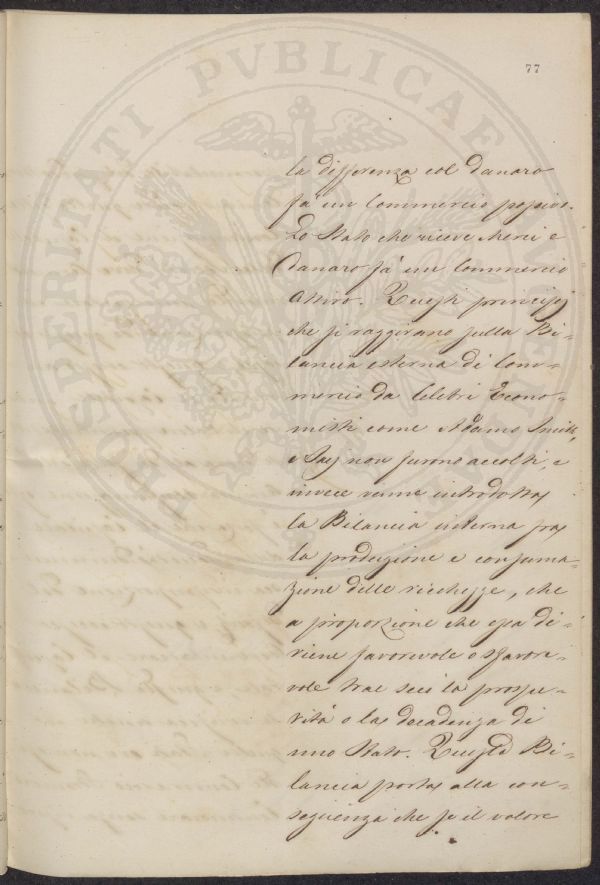 77
PROSPERITATI PVBLICAE
la differenza col danaro
fà un Commercio passivo.
Lo Stato che riceve Merci e
danaro fà un Commercio
attivo. Questi principj
che si raggirano sulla Bi-
lancia esterna di Com-
mercio da Celebri Econo-
misti come Adamo Smith,
e Say non furono accolti, e
invece venne introdotta
la Bilancia interna fra
la produzione e consuma-
zione delle ricchezze, che
a proporzione che essa di-
viene favorevole o sfavore-
vole trae seco la prospe-
rità o la decadenza di
uno Stato. Questa Bi-
lancia porta alla con-
seguenza che se il valore